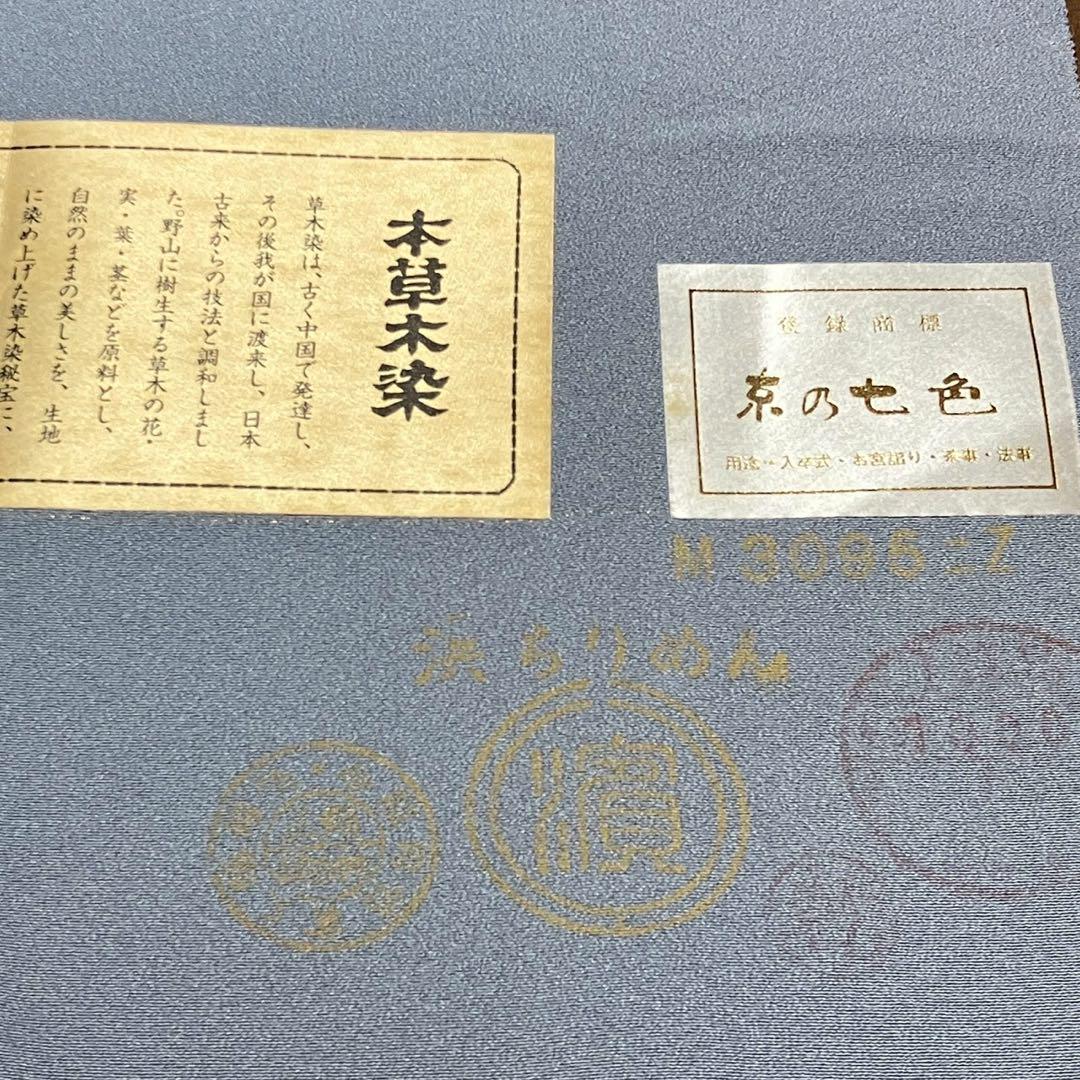 本草木染
草木染は、古く中国で発達し、
その後我が国に渡来し、日本
古来からの技法と調和しまし
た。野山に樹生する草木の花・
実・葉・茎などを原料とし、
自然のままの美しさを、生地
に染め上げた草木染秘宝に、
登録商標
京の七色
用途・入卒式・お宮詣り・茶事・法事
M3095ニZ
浜ちりめん
濱